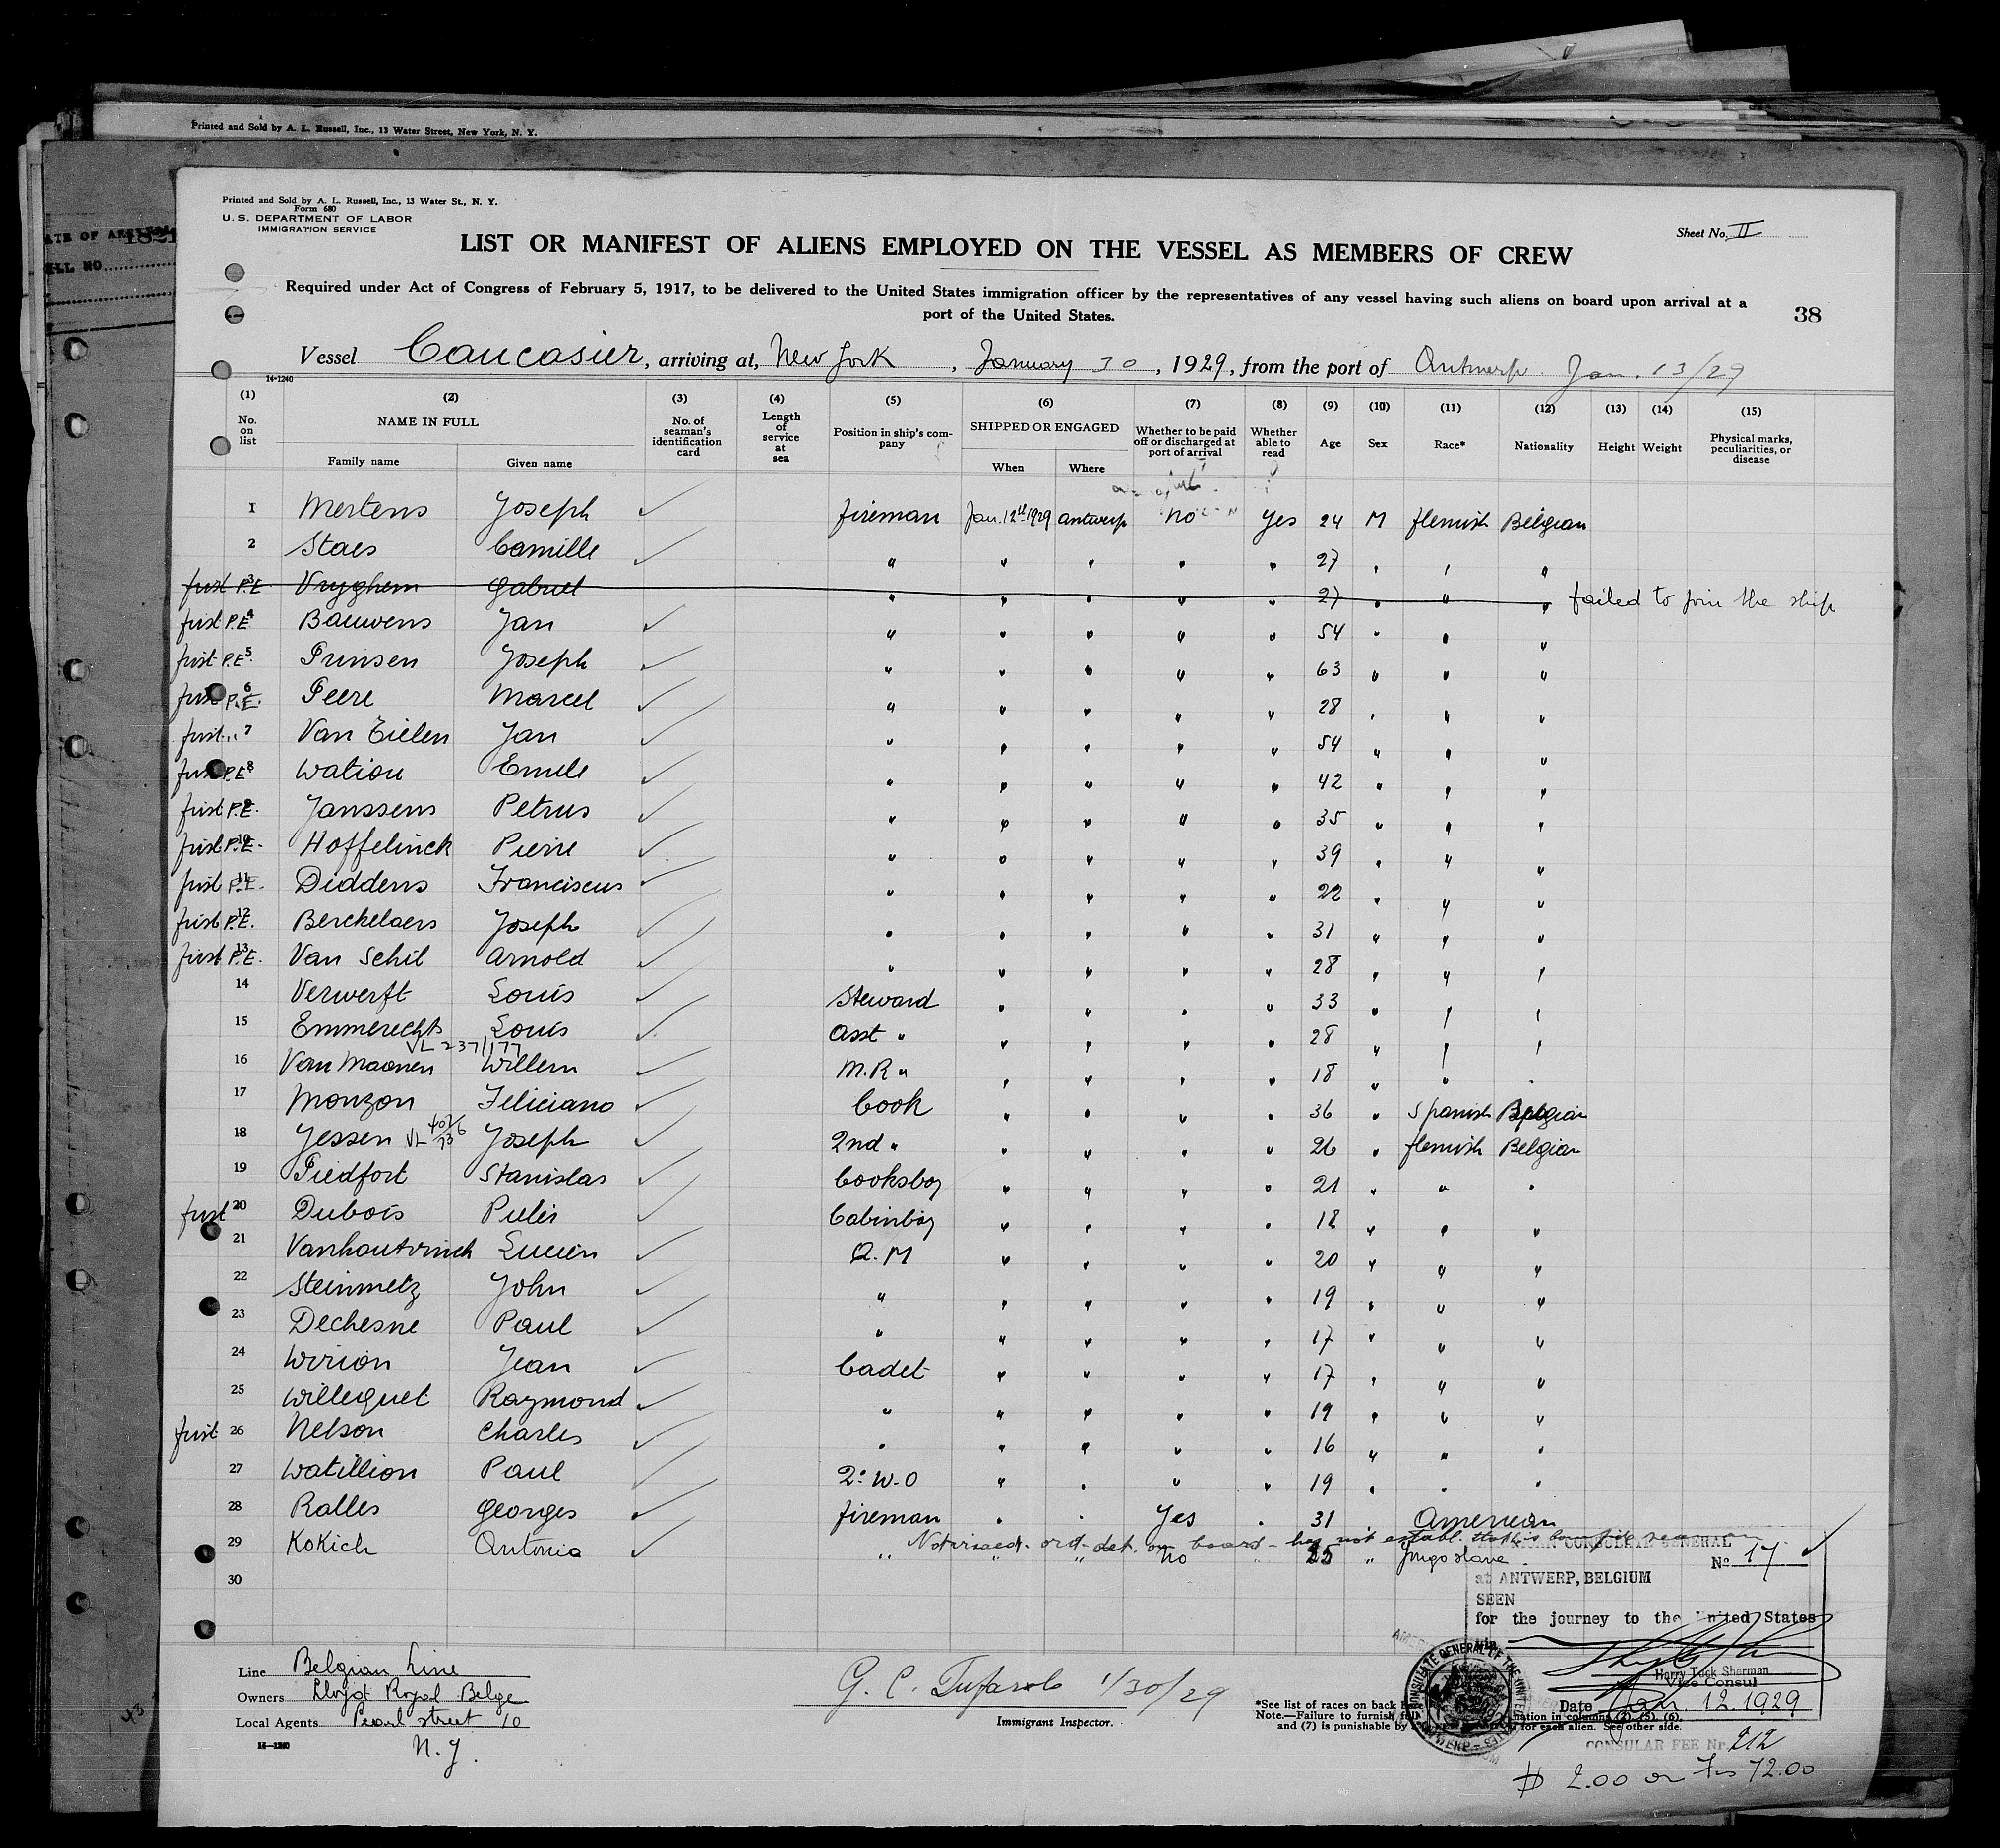 Printed and Sold by A. L. Russell, Inc., 13 Water Street, New York, N. Y.
Printed and Sold by A. L. Russell, Inc., 13 Water St., N. Y.
Form 680
U. S. DEPARTMENT OF LABOR
IMMIGRATION SERVICE
Sheet No. II
LIST OR MANIFEST OF ALIENS EMPLOYED ON THE VESSEL AS MEMBERS OF CREW
Required under Act of Congress of February 5, 1917, to be delivered to the United States immigration officer by the representatives of any vessel having such aliens on board upon arrival at a
port of the United States.
38
Vessel Caucasier, arriving at, New York, January 30, 1929, from the port of Antwerp Jan. 13/29
14-1240
(1) (2) (3) (4) (5) (6) (7) (8) (9) (10) (11) (12) (13) (14) (15)
No. on list NAME IN FULL Family name Given name No. of seaman's identification card Length of service at sea Position in ship's company SHIPPED OR ENGAGED When Where Whether to be paid off or discharged at port of arrival Whether able to read Age Sex Race* Nationality Height Weight Physical marks, peculiarities, or disease
1 Mertens Joseph ✓ fireman Jan. 12th 1929 Antwerp no yes 24 M flemish Belgian
2 Staes Camille ✓ " " " " " 27 " " "
first P.E. 3 Vryghem Gabriel " " " " " 27 " " " failed to join the ship
first P.E. 4 Bauwens Jan ✓ " " " " " 54 " " "
first P.E. 5 Prinsen Joseph ✓ " " " " " 63 " " "
first P.E. 6 Peere Marcel ✓ " " " " " 28 " " "
first " 7 Van Eielen Jan ✓ " " " " " 54 " " "
first P.E. 8 Wation Emile ✓ " " " " " 42 " " "
first P.E. 9 Janssens Petrus ✓ " " " " " 35 " " "
first P.E. 10 Hoffelinck Pierre ✓ " " " " " 39 " " "
first P.E. 11 Diddens Franciscus ✓ " " " " " 22 " " "
first P.E. 12 Berckelaers Joseph ✓ " " " " " 31 " " "
first P.E. 13 Van Schil Arnold ✓ " " " " " 28 " " "
14 Verwerft Louis ✓ Steward " " " " 33 " " "
15 Emmerechts Louis ✓ Asst " " " " " 28 " " "
VL 237/177
16 Van Maanen Willem ✓ M.R " " " " " 18 " " "
17 Monzon Feliciano ✓ Cook " " " " 36 " Spanish Belgian
18 Jessen VL Joseph ✓ 2nd " " " " " 26 " flemish Belgian
19 Piedfort Stanislas ✓ Cooksboy " " " " 21 " " "
first 20 Dubois ✓ Cabinboy " " " " 18 " " "
21 Lucien ✓ Q.M " " " " 20 " " "
22 Steinmetz John ✓ " " " " " 19 " " "
23 Dechesne Paul ✓ " " " " " 17 " " "
24 Wirion Jean ✓ Cadet " " " " 17 " " "
25 Willequet Raymond ✓ " " " " " 19 " " "
first 26 Nelson Charles ✓ " " " " " 16 " " "
27 Watillion Paul ✓ 2° W.O " " " " 19 " " "
28 Ralles Georges ✓ fireman " " Yes " 31 American
Not visaed - ord. det. on board - has not establ. that is bonafide seaman
29 Kokich Antonio ✓ " " " no " 25 " Jugoslave
30
AMERICAN CONSULATE GENERAL
No 17 ✓
at ANTWERP, BELGIUM
SEEN
for the journey to the United States
via
Harry Tuck Sherman
Vice Consul
Date Jan. 12 1929
CONSULAR FEE Nr. 212
$ 2.00 or Frs 72.00
Line Belgian Line
Owners Lloyd Royal Belge
Local Agents Pearl street 10
N. Y.
14-1240
G. C. Tufarolo 1/30/29
Immigrant Inspector.
*See list of races on back
Note.—Failure to furnish information in columns (2), (5), (6),
and (7) is punishable by for each alien. See other side.